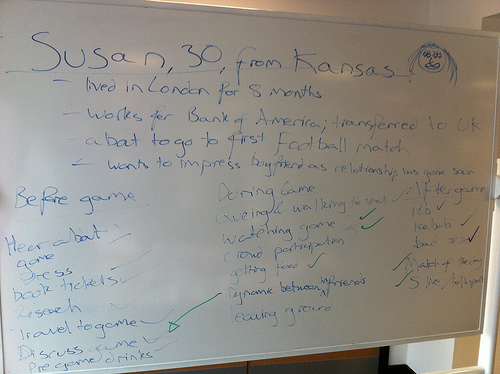 Susan, 30, from Kansas.
- lived in London for 5 months
- works for Bank of America; transferred to UK
about to go to first Football match
- wants to impress boyfriend as relationship has gone
Before game
Hear about
game
Dress
book tickets
Research
Travel to game
Discuss game
Pre game drinks
During Game
Queing & walking to seat
Watching game
Crowd participation
getting food
Dynamic between friends
leaving ground
After game
Match of the day
5 live